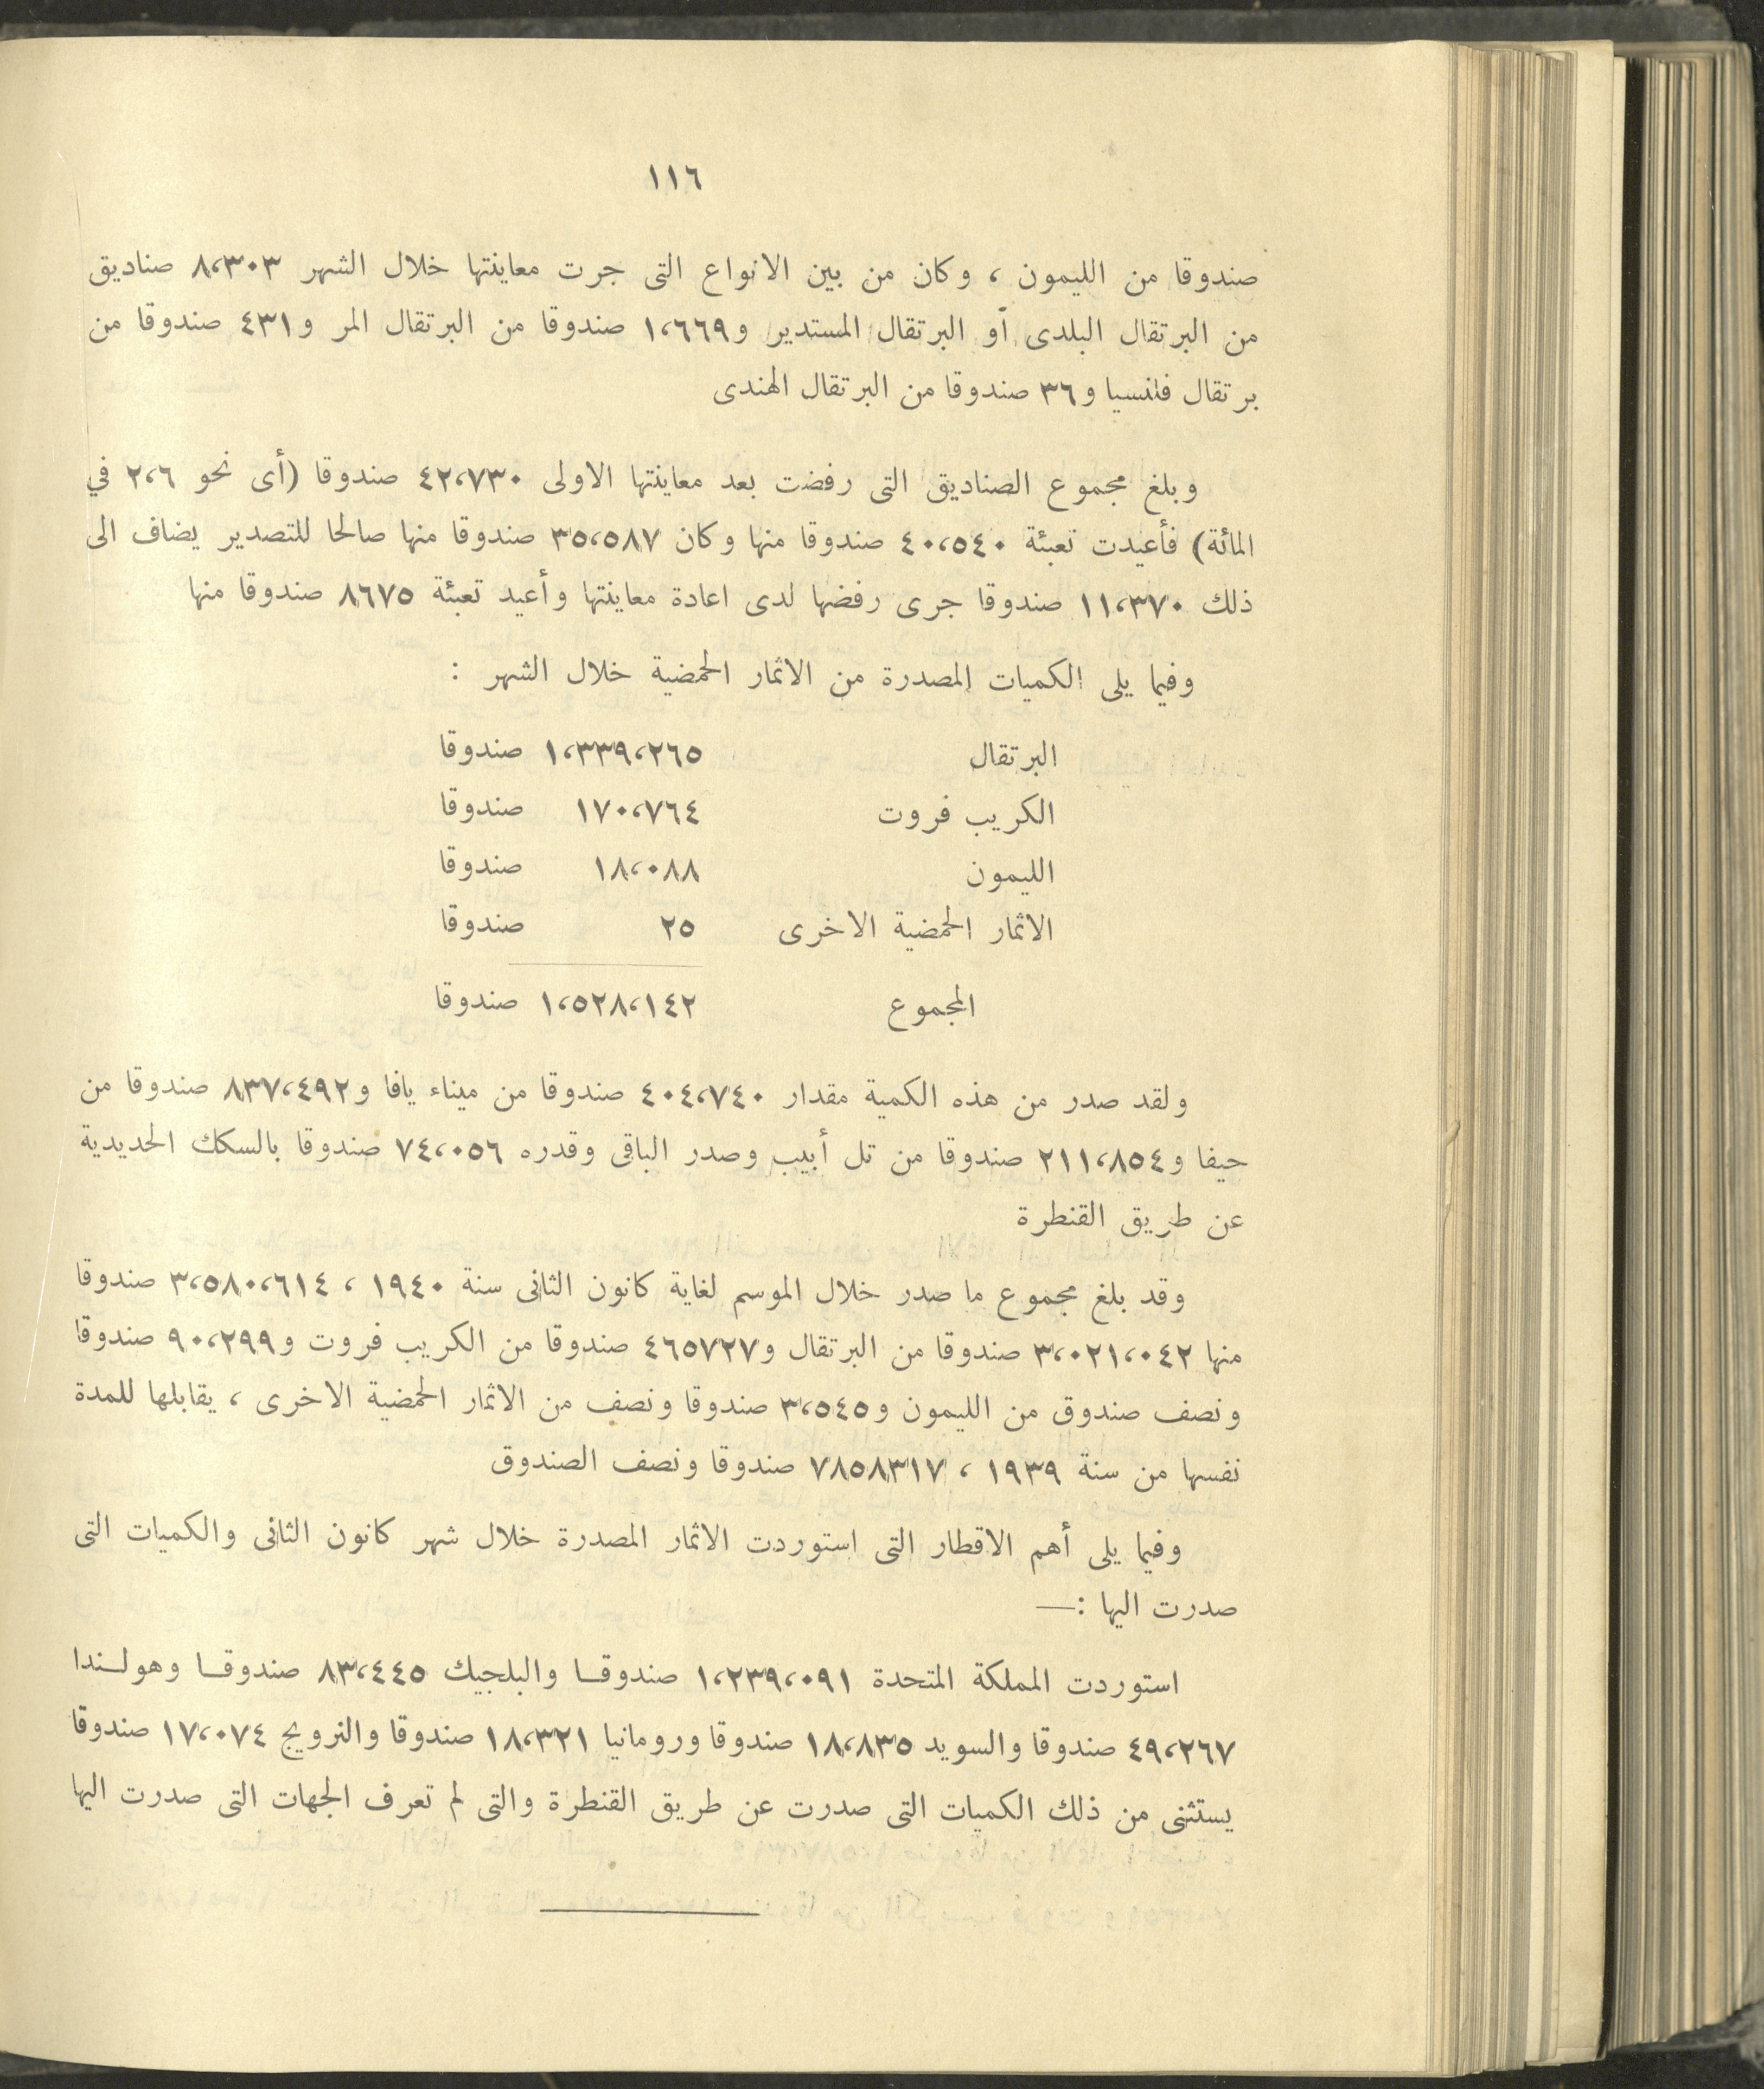 ١١٦
صندوقا من الليمون ، وكان من بين الانواع التى جرت معاينتها خلال الشهر ٨،٣٠٣ صناديق
من البرتقال البلدى أو البرتقال المستدير و١،٦٦٩ صندوقا من البرتقال المر و٤٣١ صندوقا من
برتقال فلنسيا و٣٦ صندوقا من البرتقال الهندى
وبلغ مجموع الصناديق التى رفضت بعد معاينتها الاولى ٤٢،٧٣٠ صندوقا (أى نحو ٢،٦ في
المائة) فأعيدت تعبئة ٤٠،٥٤٠ صندوقا منها وكان ٣٥،٥٨٧ صندوقا منها صالحا للتصدير يضاف الى
ذلك ١١،٣٧٠ صندوقا جرى رفضها لدى اعادة معاينتها وأعيد تعبئة ٨٦٧٥ صندوقا منها
وفيما يلى الكميات المصدرة من الاثمار الحمضية خلال الشهر :
البرتقال ١،٣٣٩،٢٦٥ صندوقا
الكريب فروت ١٧٠،٧٦٤ صندوقا
الليمون ١٨،٠٨٨ صندوقا
الاثمار الحمضية الاخرى ٢٥ صندوقا
المجموع ١،٥٢٨،١٤٢ صندوقا
ولقد صدر من هذه الكمية مقدار ٤٠٤،٧٤٠ صندوقا من ميناء يافا و٨٣٧،٤٩٢ صندوقا من
حيفا و٢١١،٨٥٤ صندوقا من تل أبيب وصدر الباقى وقدره ٧٤،٠٥٦ صندوقا بالسكك الحديدية
عن طريق القنطرة
وقد بلغ مجموع ما صدر خلال الموسم لغاية كانون الثانى سنة ١٩٤٠ ، ٣،٥٨٠،٦١٤ صندوقا
منها ٣،٠٢١،٠٤٢ صندوقا من البرتقال و٤٦٥٧٢٧ صندوقا من الكريب فروت و٩٠،٢٩٩ صندوقا
ونصف صندوق من الليمون و٣،٥٤٥ صندوقا ونصف من الاثمار الحمضية الاخرى ، يقابلها للمدة
نفسها من سنة ١٩٣٩ ، ٧٨٥٨٣١٧ صندوقا ونصف الصندوق
وفيما يلى أهم الاقطار التى استوردت الاثمار المصدرة خلال شهر كانون الثانى والكميات التى
صدرت اليها :—
استوردت المملكة المتحدة ١،٢٣٩،٠٩١ صندوقـا والبلجيك ٨٣،٤٤٥ صندوقـا وهولـندا
٤٩،٢٦٧ صندوقا والسويد ١٨،٨٣٥ صندوقا ورومانيا ١٨،٣٢١ صندوقا والنرويج ١٧،٠٧٤ صندوقا
يستثنى من ذلك الكميات التى صدرت عن طريق القنطرة والتى لم تعرف الجهات التى صدرت اليها